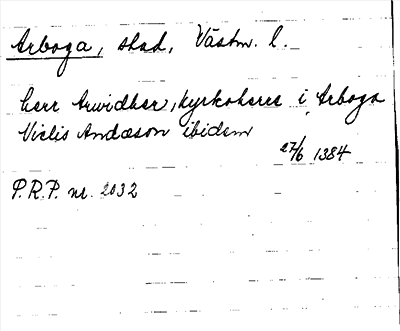 Arboga, stad, Västm. l.
herr Arvidher, kyrkoherre i Arboga
Niclis Andæson ibidem
27/6 1384
P.R.P. nr. 2032